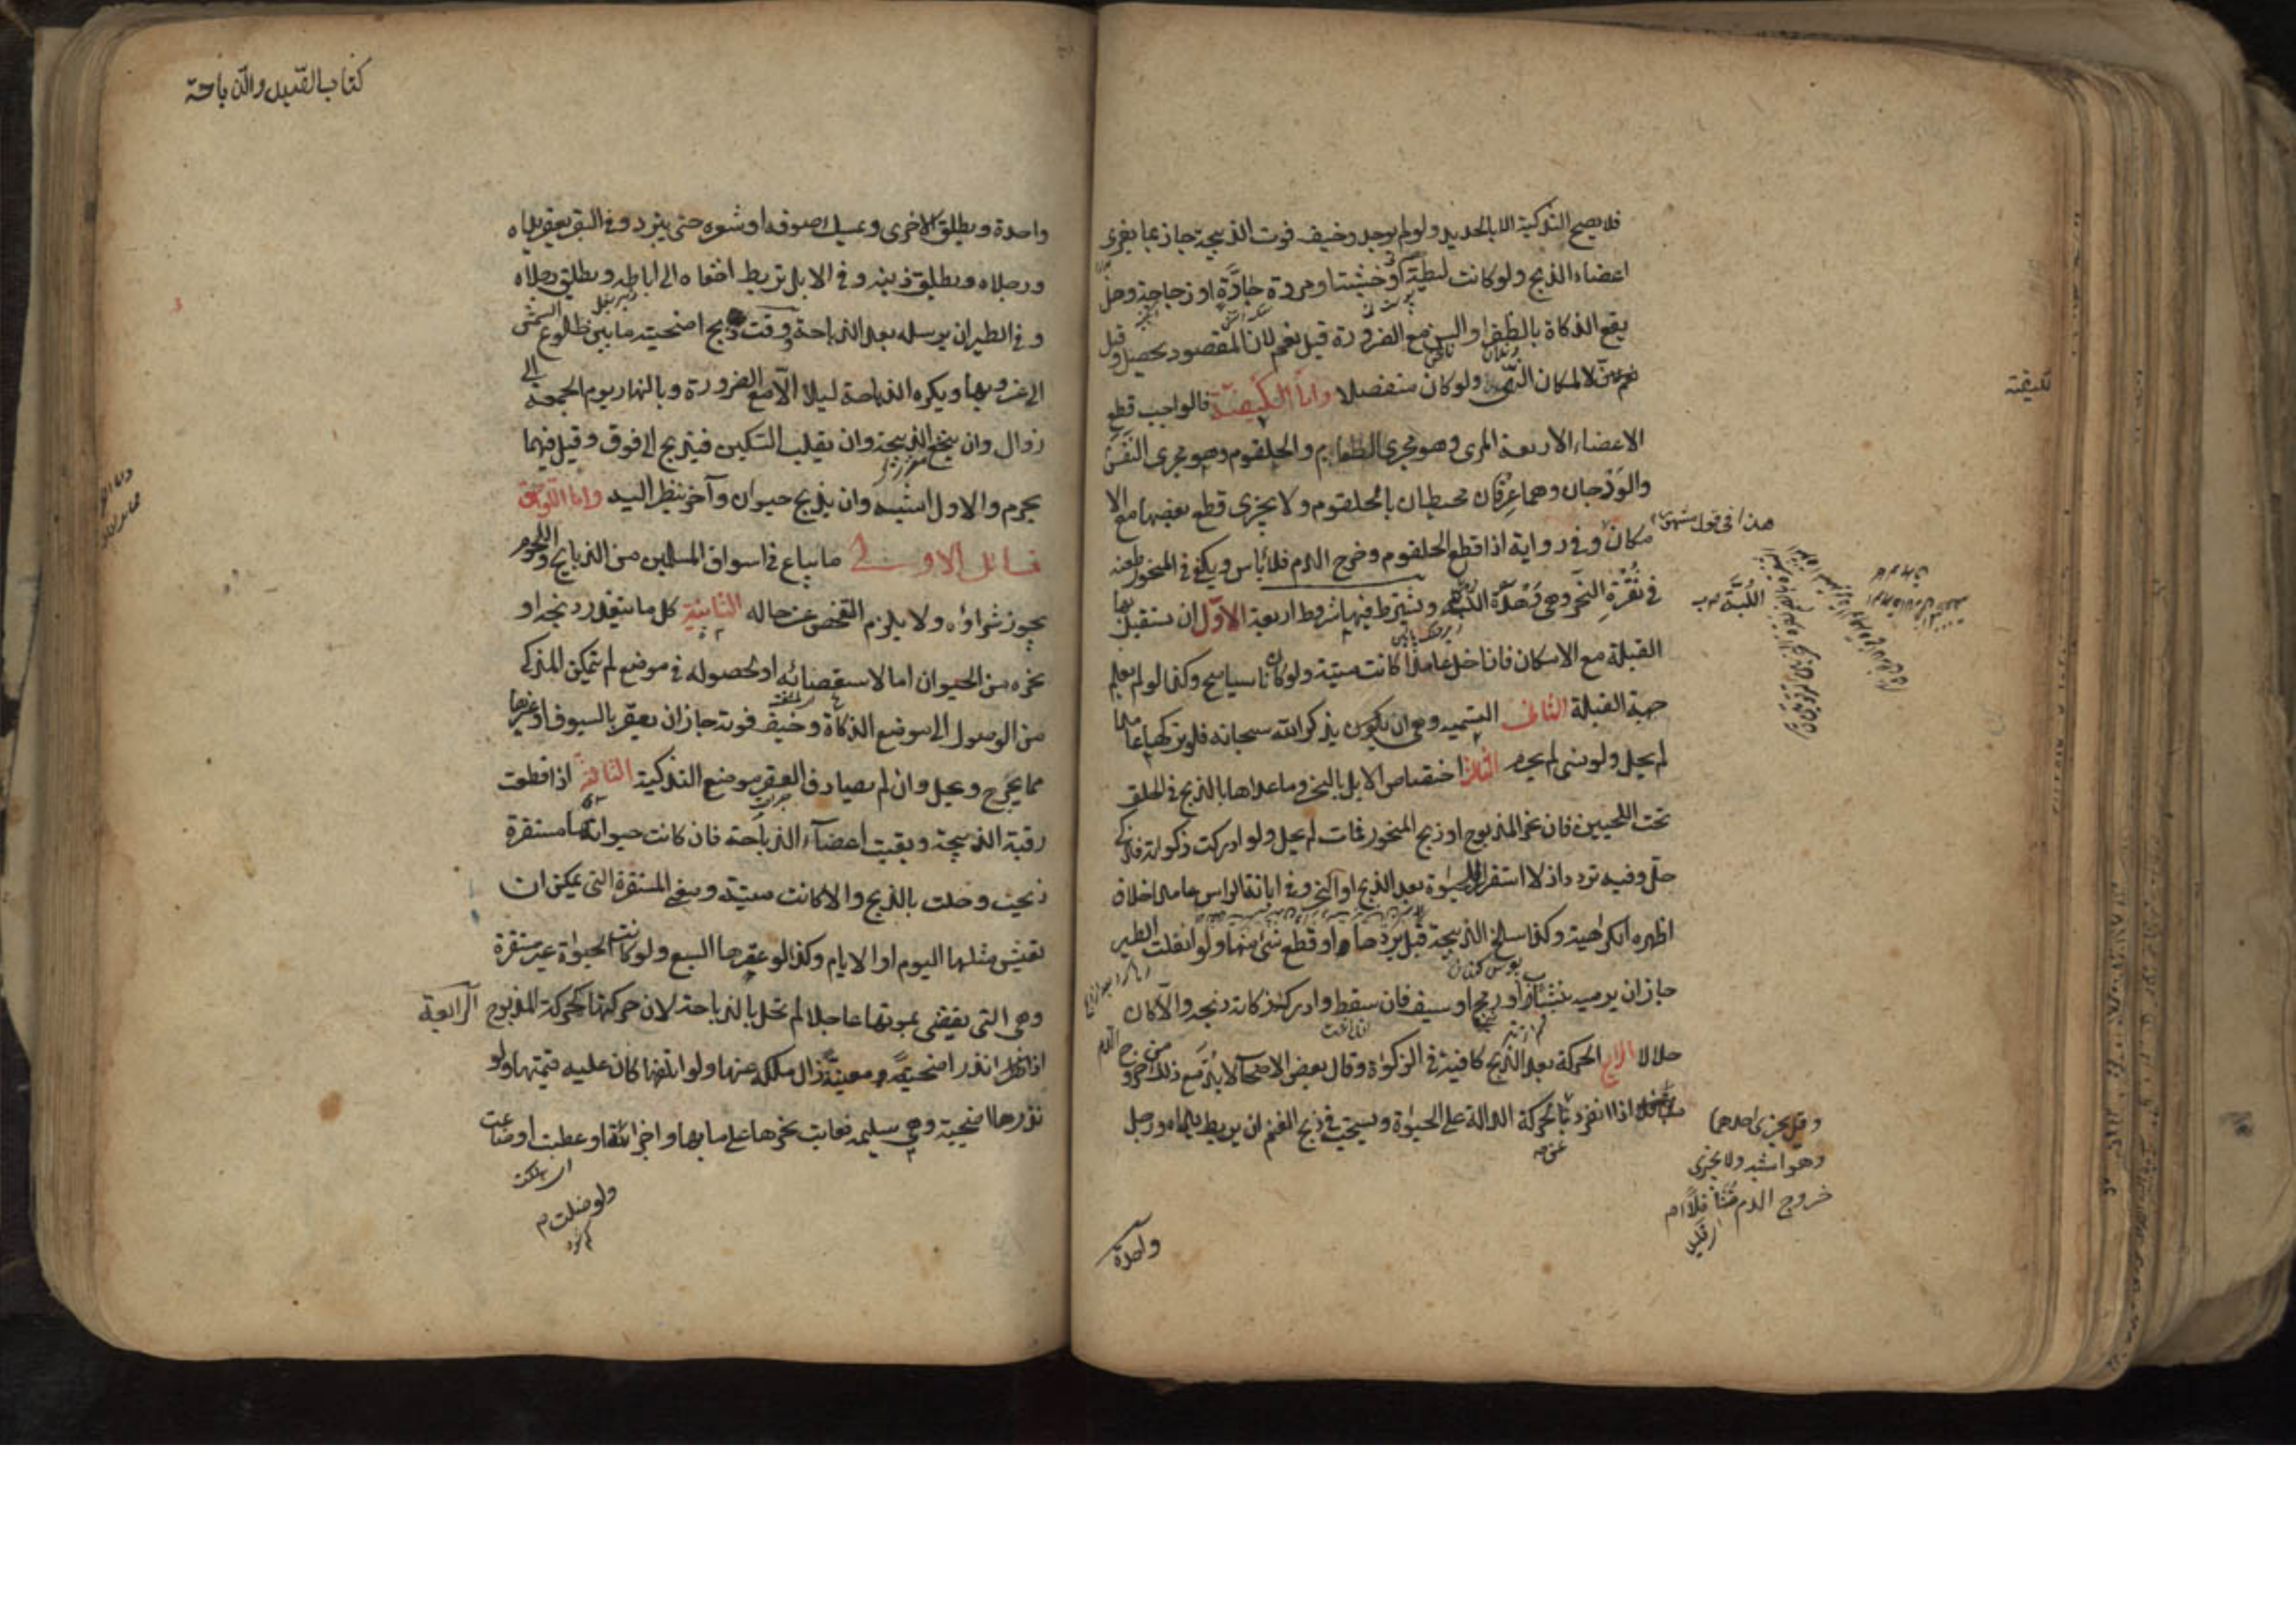 فلا يصح التذكية الا بالحديد ولو لم يوجد وخيف فوت الذبيحة جاز بما يفرى
اعضاء الذبح ولو كانت ليطة او خشبة او مروة حادة او زجاجة وهل
يقع الذكاة بالظفر او السن مع الضرورة قيل نعم لان المقصود يحصل وقيل
لا لمكان النهى ولو كان منفصلا واما الكيفية فالواجب قطع
الاعضاء الاربعة المرى وهو مجرى الطعام والحلقوم وهو مجرى النفس
والودجان وهما عرقان محيطان بالحلقوم ولا يجزى قطع بعضها مع الا
مكان وفى رواية اذا قطع الحلقوم وخرج الدم فلا بأس ويكفى فى المنحور طعنه
فى ثغرة النحر وهى وهدة اللبة ويشترط فيها شروط اربعة الاول ان يستقبل بها
القبلة مع الامكان فان اخل عامدا كانت ميتة ولو كان ناسيا صح وكذا لو لم يعلم
جهة القبلة الثانى التسمية وهى ان يكون يذكر الله سبحانه فلو تركها عامدا
لم يحل ولو نسى لم يحرم الثالث اختصاص الابل بالنحر وما عداها بالذبح فى الحلق
تحت اللحيين فان نحر المذبوح او ذبح المنحور فمات لم يحل ولو ادركت ذكوته فذكى
حل وفيه تردد اذ لا استقرار للحيوة بعد الذبح او النحر وفى ابانة الراس عامدا خلاف
اظهره الكراهية وكذا سلخ الذبيحة قبل بردها او قطع شئ منها ولو انفلت الطير
جاز ان يرميه بنشاب او رمح او سيف فان سقط وادرك ذكاته ذبحه والا كان
حلالا الرابع الحركة بعد الذبح كافية فى الذكوة وقال بعض الاصحاب لا بد مع ذلك من خروج الدم
اذا انفرد بالحركة الدالة على الحيوة ويستحب فى ذبح الغنم ان يربط يداه ورجل
هذا فى قول مشهور
اللبة
لكيفية
وقيل يجزى احدهما
وهو اشبه ولا يجزى
خروج الدم متثاقلا
واحدة
كتاب الصيد والذباحة
واحدة ويطلق الاخرى ويمسك صوفه او شعره حتى يبرد وفى البقر يعقد يداه
ورجلاه ويطلق ذنبه وفى الابل تربط اخفافه الى اباطه ويطلق رجلاه
وفى الطير ان يرسله بعد الذباحة ووقت ذبح اضحيته ما بين طلوع الشمس
الى غروبها ويكره الذباحة ليلا الا مع الضرورة وبالنهار يوم الجمعة الى
زوال وان ينخع الذبيحة وان يقلب السكين فيذبح الى فوق وقيل فيهما
يحرم والاول اشبه وان يذبح حيوان وآخر ينظر اليه واما اللواحق
فسائل الاولى ما يباع فى اسواق المسلمين من الذبايح واللحوم
يجوز شراؤه ولا يلزم التفحص عن حاله الثانية كل ما يتعذر ذبحه او
نحره من الحيوان اما لاستعصائه او لحصوله فى موضع لم يتمكن المذكى
من الوصول الى موضع الذكاة وخيف فوته جاز ان يعقر بالسيوف او غيرها
مما يجرح ويحل وان لم يصادف العقر موضع التذكية الثالثة اذا قطعت
رقبة الذبيحة وبقيت اعضاء الذباحة فان كانت حيواتها مستقرة
ذبحت وحلت بالذبح والا كانت ميتة ومعنى المستقرة التى يمكن ان
تعيش مثلها اليوم او الايام وكذا لو عقرها السبع ولو كانت الحيوة غير مستقرة
وهى التى يقضى بموتها عاجلا لم تحل بالذباحة لان حركتها كحركة المذبوح الرابعة
اذا نذر اضحية معينة زال ملكه عنها ولو اتلفها كان عليه قيمتها ولو
نذرها اضحية وهى سليمة فعابت نحرها على ما بها واجزأته ولو عطبت او ضاعت
ولو ضلت